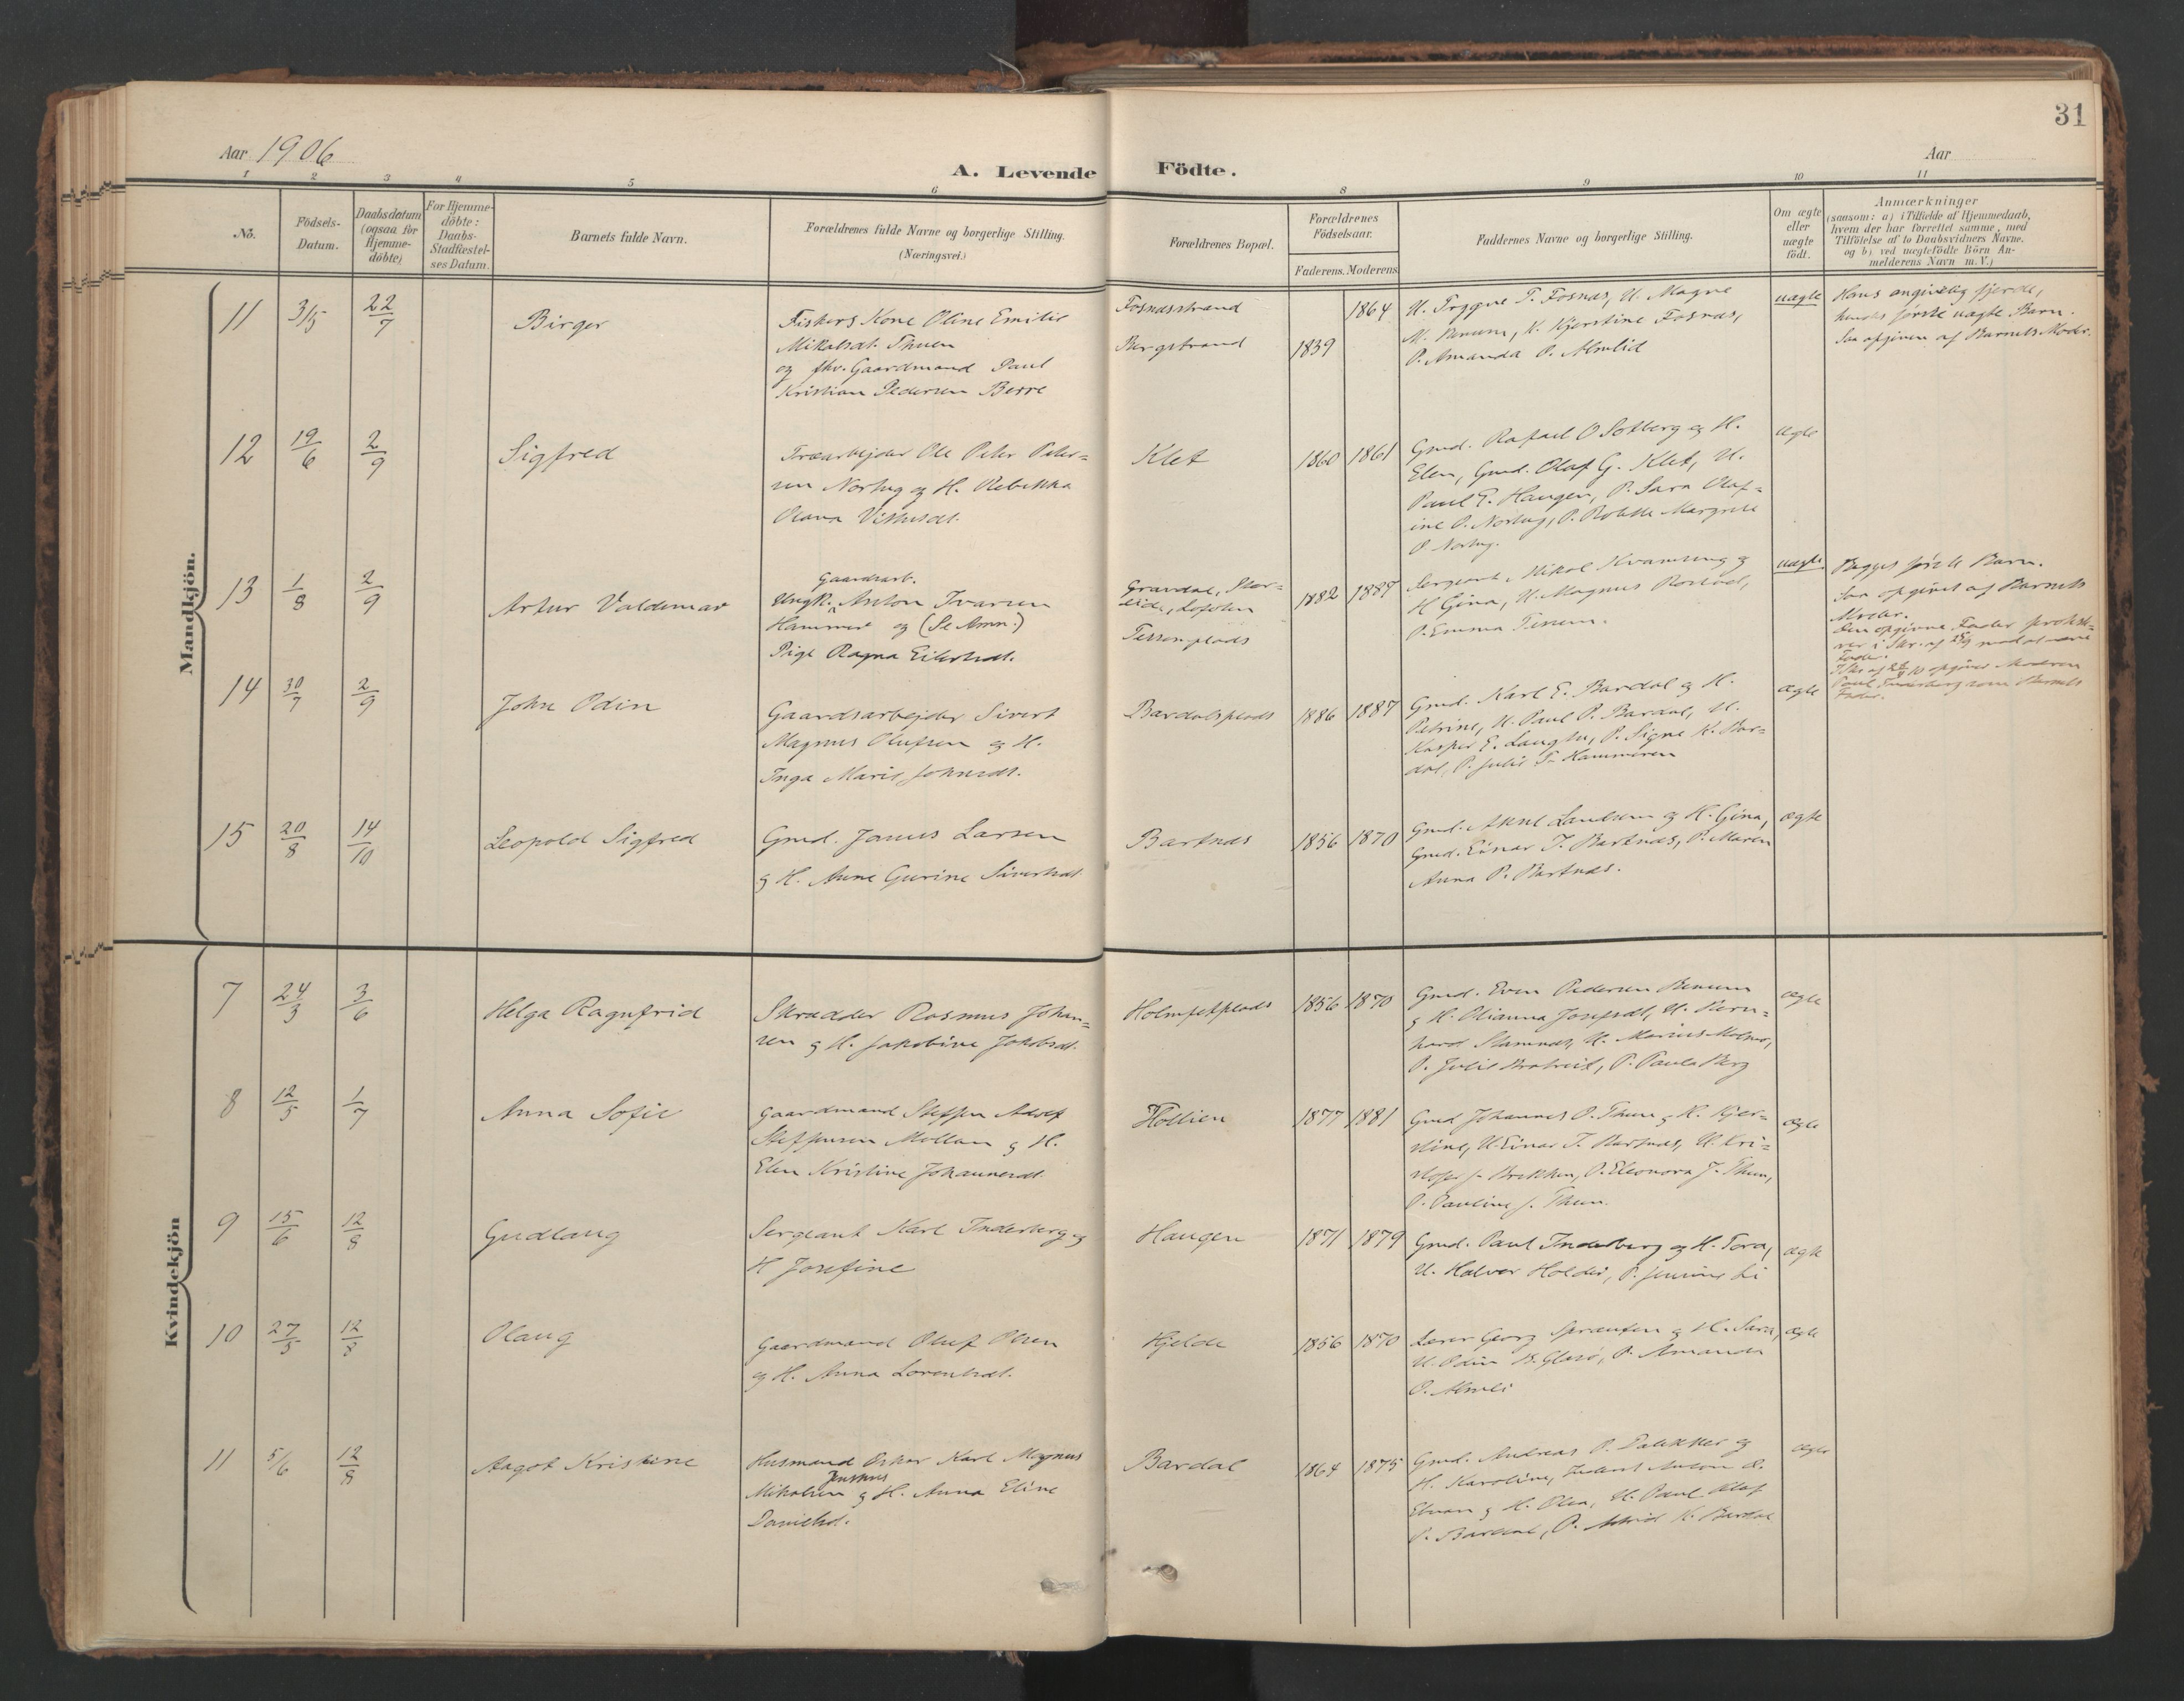 31
Aar 1906
Aar
A. Levende Födte.
1 2 3 4 5 6 8 9 10 11
No.
Födsels-
Datum.
Daabsdatum
(ogsaa for
Hjemme-
döbte)
For Hjemme-
döbte:
Daabs-
Stadfæstel-
ses Datum.
Barnets fulde Navn.
Forældrenes fulde Navne og borgerlige Stilling.
(Næringsvei.)
Forældrenes Bopæl.
Forældrenes
Födselsaar.
Faderens. Moderens.
Faddernes Navne og borgerlige Stilling.
Om ægte
eller
uægte
födt.
Anmærkninger
(saasom: a) i Tilfælde af Hjemmedaab,
hvem der har forrettet samme, med
Tilföielse af to Daabsvidners Navne.
og b) ved uægtefödte Börn An-
melderens Navn m.V.)
Mandkjön.
11 3/5 22/7
Birger
Fiskers Kone Oline Emilie
Mikalsdt. Thuen
og fhv. Gaardmand Paul
Kristian Pedersen Berre
Fosnasstrand
Bergstrand
1839 1864
U. Tryggve T. Fosnas, U. Magne
M. Benum, K. Kjerstine Fosnas,
P. Amanda P. Almlid
uægte
Hans angivelig fjerde,
hendes første uægte Barn.
Saa opgiven af Barnets Moder.
12 19/6 2/9
Sigfred
Træarbejder Ole Peter Peter=
sen Nortug og H. Rebekka
Olava
Klet
1860 1861
Gmd. Rafael O Solberg og H.
Elen, Gmd. Olaf G. Klet, U.
Paul E. Haugen, P. Sara Olaf=
ine P. Nortug, P. Margrete
O Nortug.
ægte
13 1/8 2/9
Artur Valdemar
Gaardsarb.
Ungk. Anton Ivarsen
Hammer og (Se Anm.)
Pige Ragna Eilertsdt.
Gravdal, Stor-
eide, Lofoten
1882 1887
Sergeant Mikal Kvamseng og
H Gina, U. Magnus Rostad,
P. Emma
uægte.
Begges første Barn.
Saa opgivet af Barnets
Moder.
Den opgivne Fader
Paul Inderberg som Barnets
Fader.
14 30/7 2/9
John Odin
Gaardsarbejder Sivert
Magnus Olufsen og H.
Inga Marie Johnsdt.
Bardalsplads
1886 1887
Gmd. Karl E. Bardal og H.
Petrine, U. Paul P. Bardal, U.
Kasper E. Langli, P. Signe K. Bar=
dal, P. Julie S. Hammeren
ægte
15 20/8 14/10
Leopold Sigfred
Gmd. Janus Larsen
og H. Anne Gurine Sivertsdt.
Bartnas
1856 1870
Gmd. Aksel Laudsem og H. Gina,
Gmd. Einar T. Bartnas, P. Maren
Anna P. Bartnas.
ægte
Kvindekjön
7 24/3 3/6
Helga Ragnfrid
Skrædder Rasmus Johan=
sen og H. Jakobine Jakobsdt.
Holmsetplads
1856 1870
Gmd. Even Pedersen Benum
og H. Olianna Josefsdt, U. Bern=
hard Stamnas, U. Marius Molner,
P. Julie, P. Paula Berg
ægte
8 12/5 1/7
Anna Sofie
Gaardmand Steffen Adolf
Steffensen Mollan og H.
Elen Kristine Johannesdt.
Hollien
1877 1881
Gmd Johannes P. Thun og H. Kjer=
stine, U. Einar T. Bartnas, U. Kri=
stofer J. Brekken, P. Eleonora J. Thun,
P. Pauline J. Thun.
ægte
9 15/6 12/8
Gudlaug
Sergeant Karl Inderberg og
H Josefine
Haugen
1871 1879
Gmd. Paul Inderberg og H. Tora,
U. Halvor Holden, P. Jensine Li
ægte
10 27/5 12/8
Olaug
Gaardmand Oluf Olsen
og H. Anna Lorentsdt.
Hjelde
1856 1870
Lærer Georg og H. Sara,
U. Odin B. Glasø, P. Amanda
P. Almli
ægte
11 5/6 12/8
Aagot Kristine
Husmand Oskar Karl Magnus
Mikalsen Jenshus og H. Anna Eline
Danielsd.
Bardal
1864 1875
Gmd. Andreas P. og
H. Karoline, Anton
og H. Olea, U. Paul Olaf
P. Bardal, P. Astrid K. Bardal
ægte